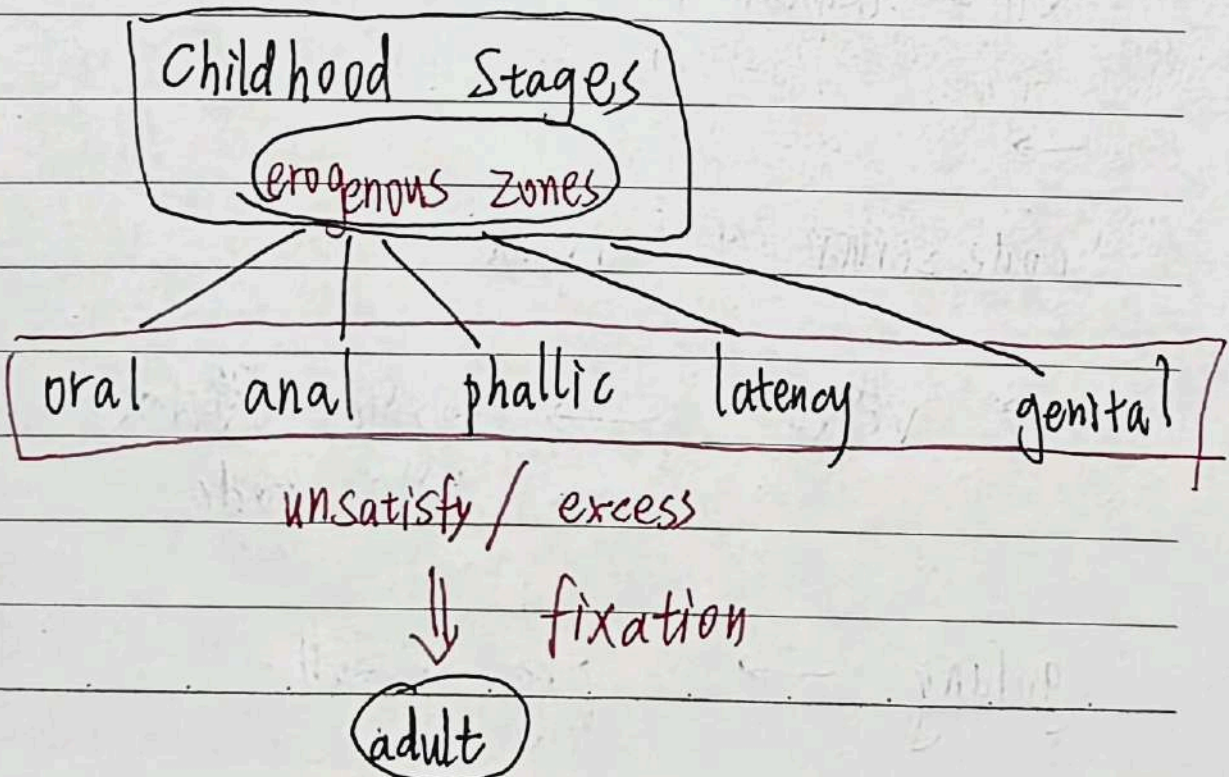 Childhood Stages
erogenous zones
oral anal phallic latency genital
unsatisfy / excess
fixation
adult